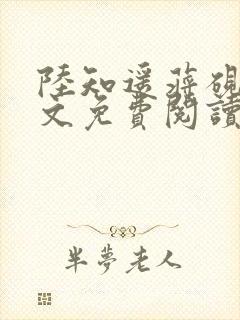 陸知遥蔣硯
文免費閱讀
半夢老人